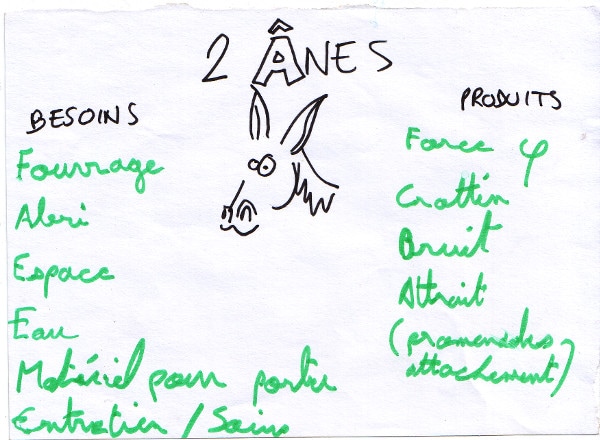 2 ÂNES
BESOINS
Fourrage
Abri
Espace
Eau
Matériel pour porter
Entretien / Soins
PRODUITS
Force φ
Crottin
Bruit
Attrait
(promenades,
attachement)